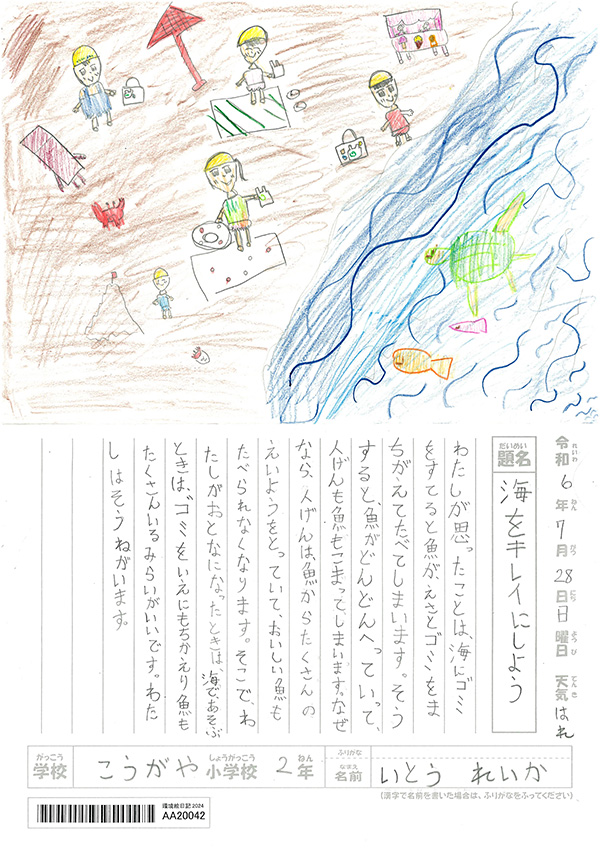 令和6年7月28日日曜日 天気 はれ
れいわ ねん がつ にち ようび てんき
だいめい
題名 海をキレイにしよう
わたしが思ったことは、海にゴミ
をすてると魚が、えさとゴミをま
ちがえてたべてしまいます。そう
すると、魚がどんどんへっていって、
人げんも魚もこまって、しまいます。なぜ
なら、人げんは魚からたくさんの
えいようをとっていて、おいしい魚も
たべられなくなります。そこで、わ
たしがおとなになったときは、海であそぶ
ときは、ゴミをいえにもちかえり魚も
たくさんいるみらいがいいです。わた
しはそうねがいます。
がっこう しょうがっこう ねん
学校 こうがや 小学校 2年
ふりがな
なまえ
名前 いとう れいか
(漢字で名前を書いた場合は、ふりがなをふってください)
環境絵日記2024
AA20042